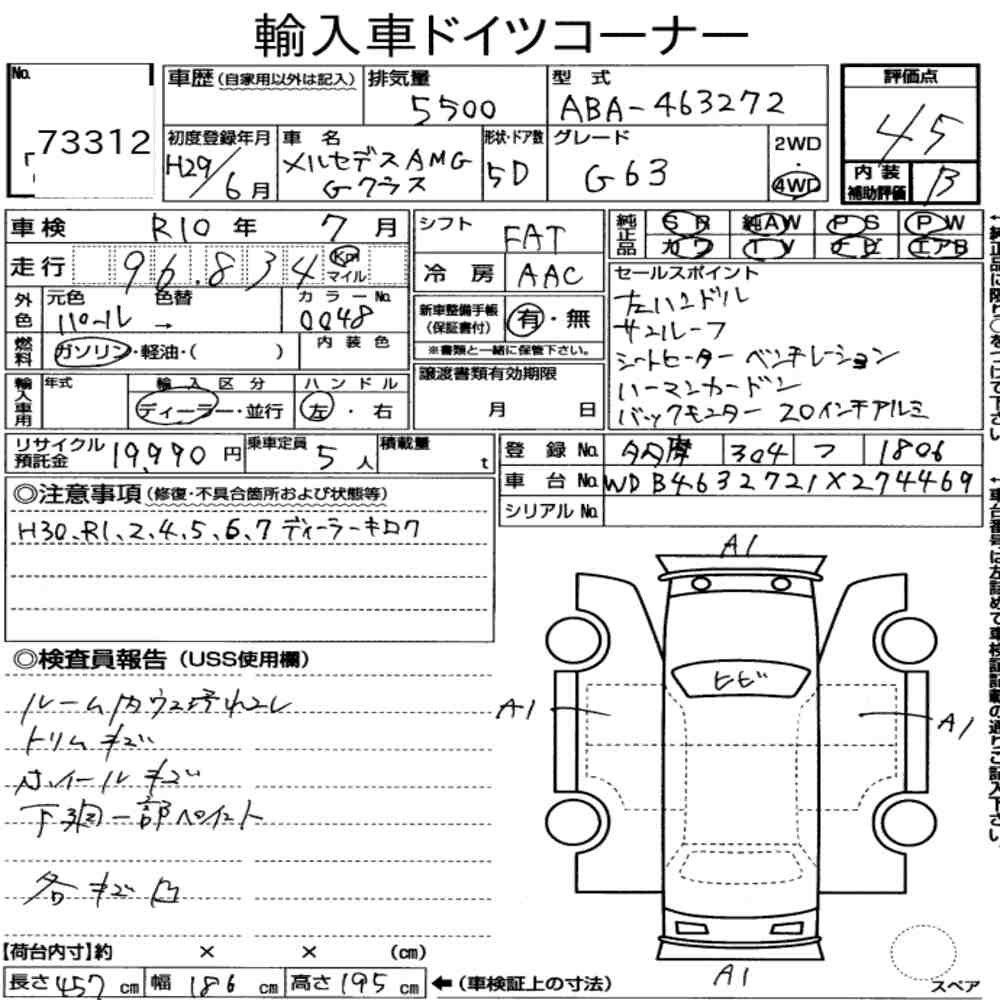 輸入車ドイツコーナー
No. 73312
車歴(自家用以外は記入)
排気量 5500
型式 ABA-463272
評価点 45
初度登録年月 H29/6月
車名 メルセデスAMG
Gクラス
形状・ドア数 5D
グレード G63
2WD
・
4WD
内装
補助評価 B
車検 R10年 7月
走行 96.834 Km
マイル
シフト FAT
冷房 AAC
純正品 SR 純AW PS PW
カワ TV ナビ エアB
外色 元色 パール 色替 → カラーNo. 0048
燃料 ガソリン・軽油・( ) 内装色
新車整備手帳
(保証書付) 有・無
※書類と一緒に保管下さい。
セールスポイント
左ハンドル
サンルーフ
シートヒーター ベンチレーション
ハーマンカードン
バックモニター 20インチアルミ
輸入車用 年式 輸入区分 ディーラー・並行 ハンドル 左・右
譲渡書類有効期限
月 日
リサイクル
預託金 19,990円 乗車定員 5人 積載量 t
登録No. 多摩 304 フ 1806
車台No. WDB4632721X274469
シリアルNo.
◎注意事項(修復・不具合箇所および状態等)
H30、R1、2、4、5、6、7 ディーラーキロク
◎検査員報告(USS使用欄)
ルーム内ウス汚れコレ
トリムキズ
ホイールキズ
下廻一部ペイント
各キズ凹
A1
ヒビ
A1
A1
A1
スペア
【荷台内寸】約 × × (cm)
長さ 457cm 幅 186cm 高さ 195cm ←(車検証上の寸法)
↑純正品に限り○をつけて下さい。
↑車台番号は左詰めで車検証記載の通りご記入下さい。